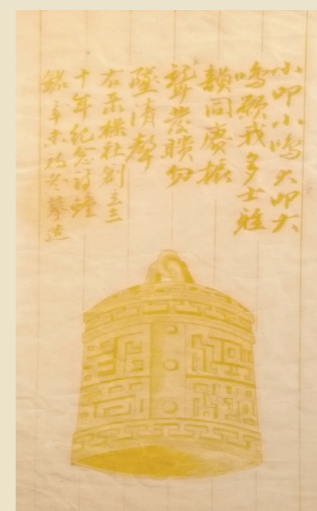 小叩小鳴大叩大
鳴願我多士雅
韻同慶振
聾發聵勿
墜清聲
右櫟社創立三
十年紀念詩鐘
銘辛未冬